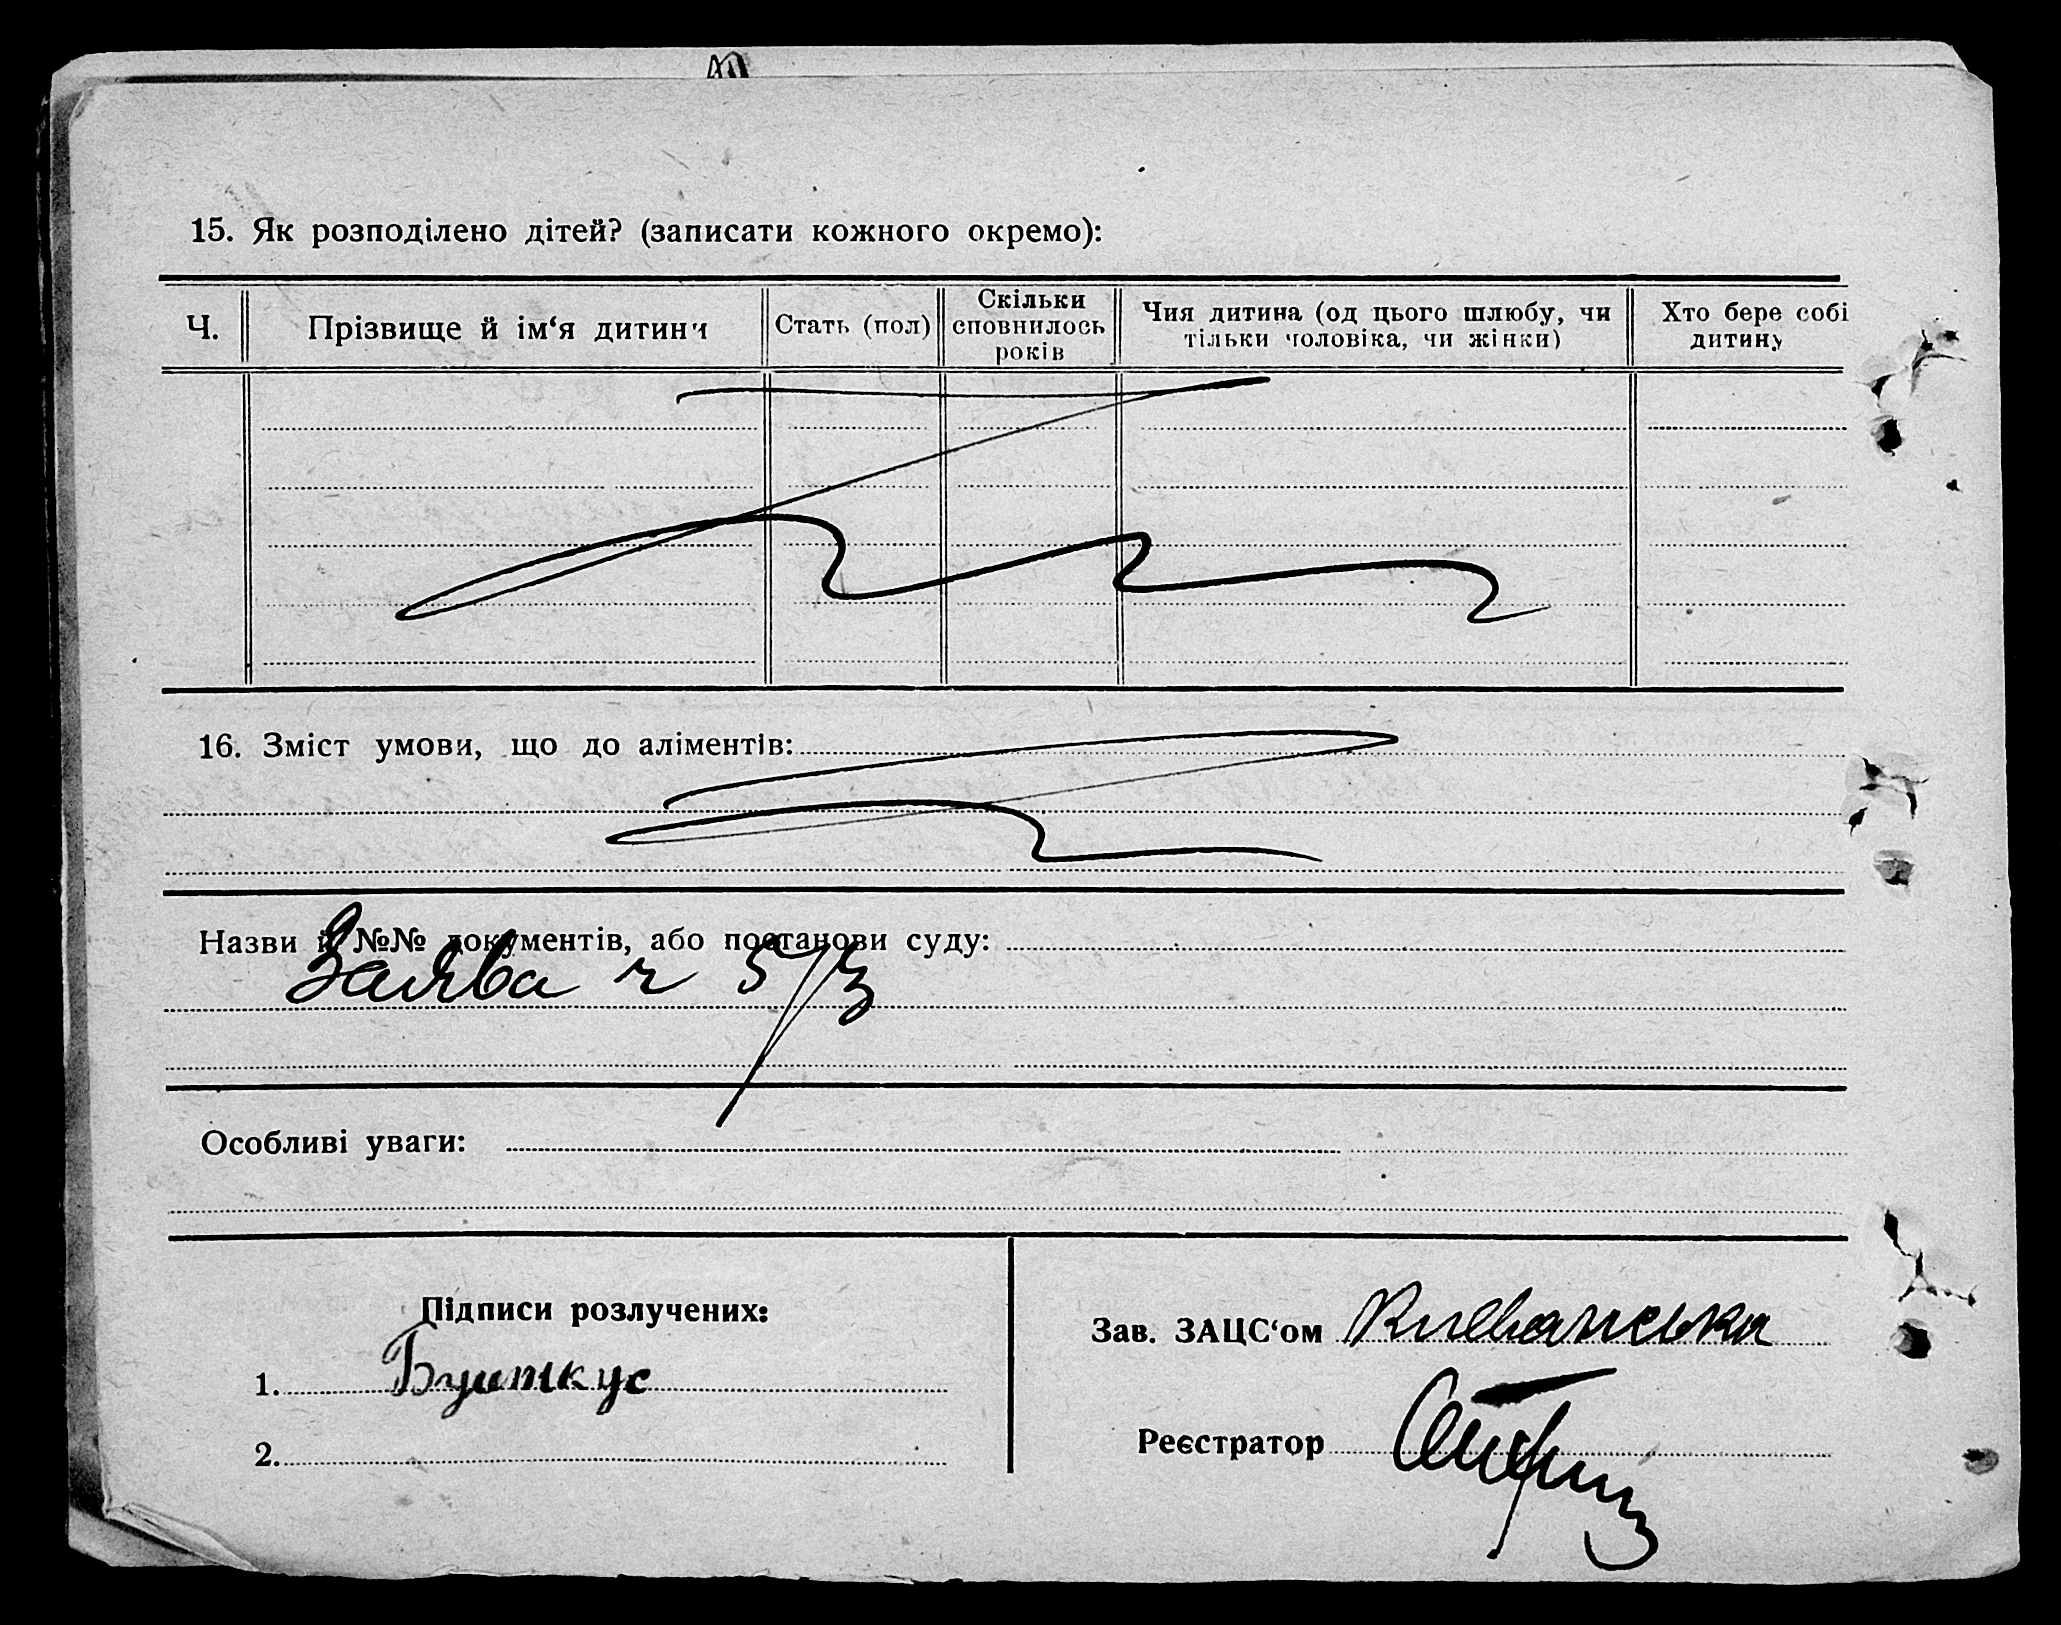 15. Як розподілено дітей? (записати кожного окремо):
Ч.
Прізвище й ім‘я дитини
Стать (пол)
Скільки
сповнилось
років
Чия дитина (од цього шлюбу, чи
тільки чоловіка, чи жінки)
Хто бере собі
дитину
16. Зміст умови, що до аліментів:
Назви й №№ документів, або постанови суду:
Заява ч 5/3
Особливі уваги:
Підписи розлучених:
1. Бушткус
2.
Зав. ЗАЦС‘ом
Реєстратор